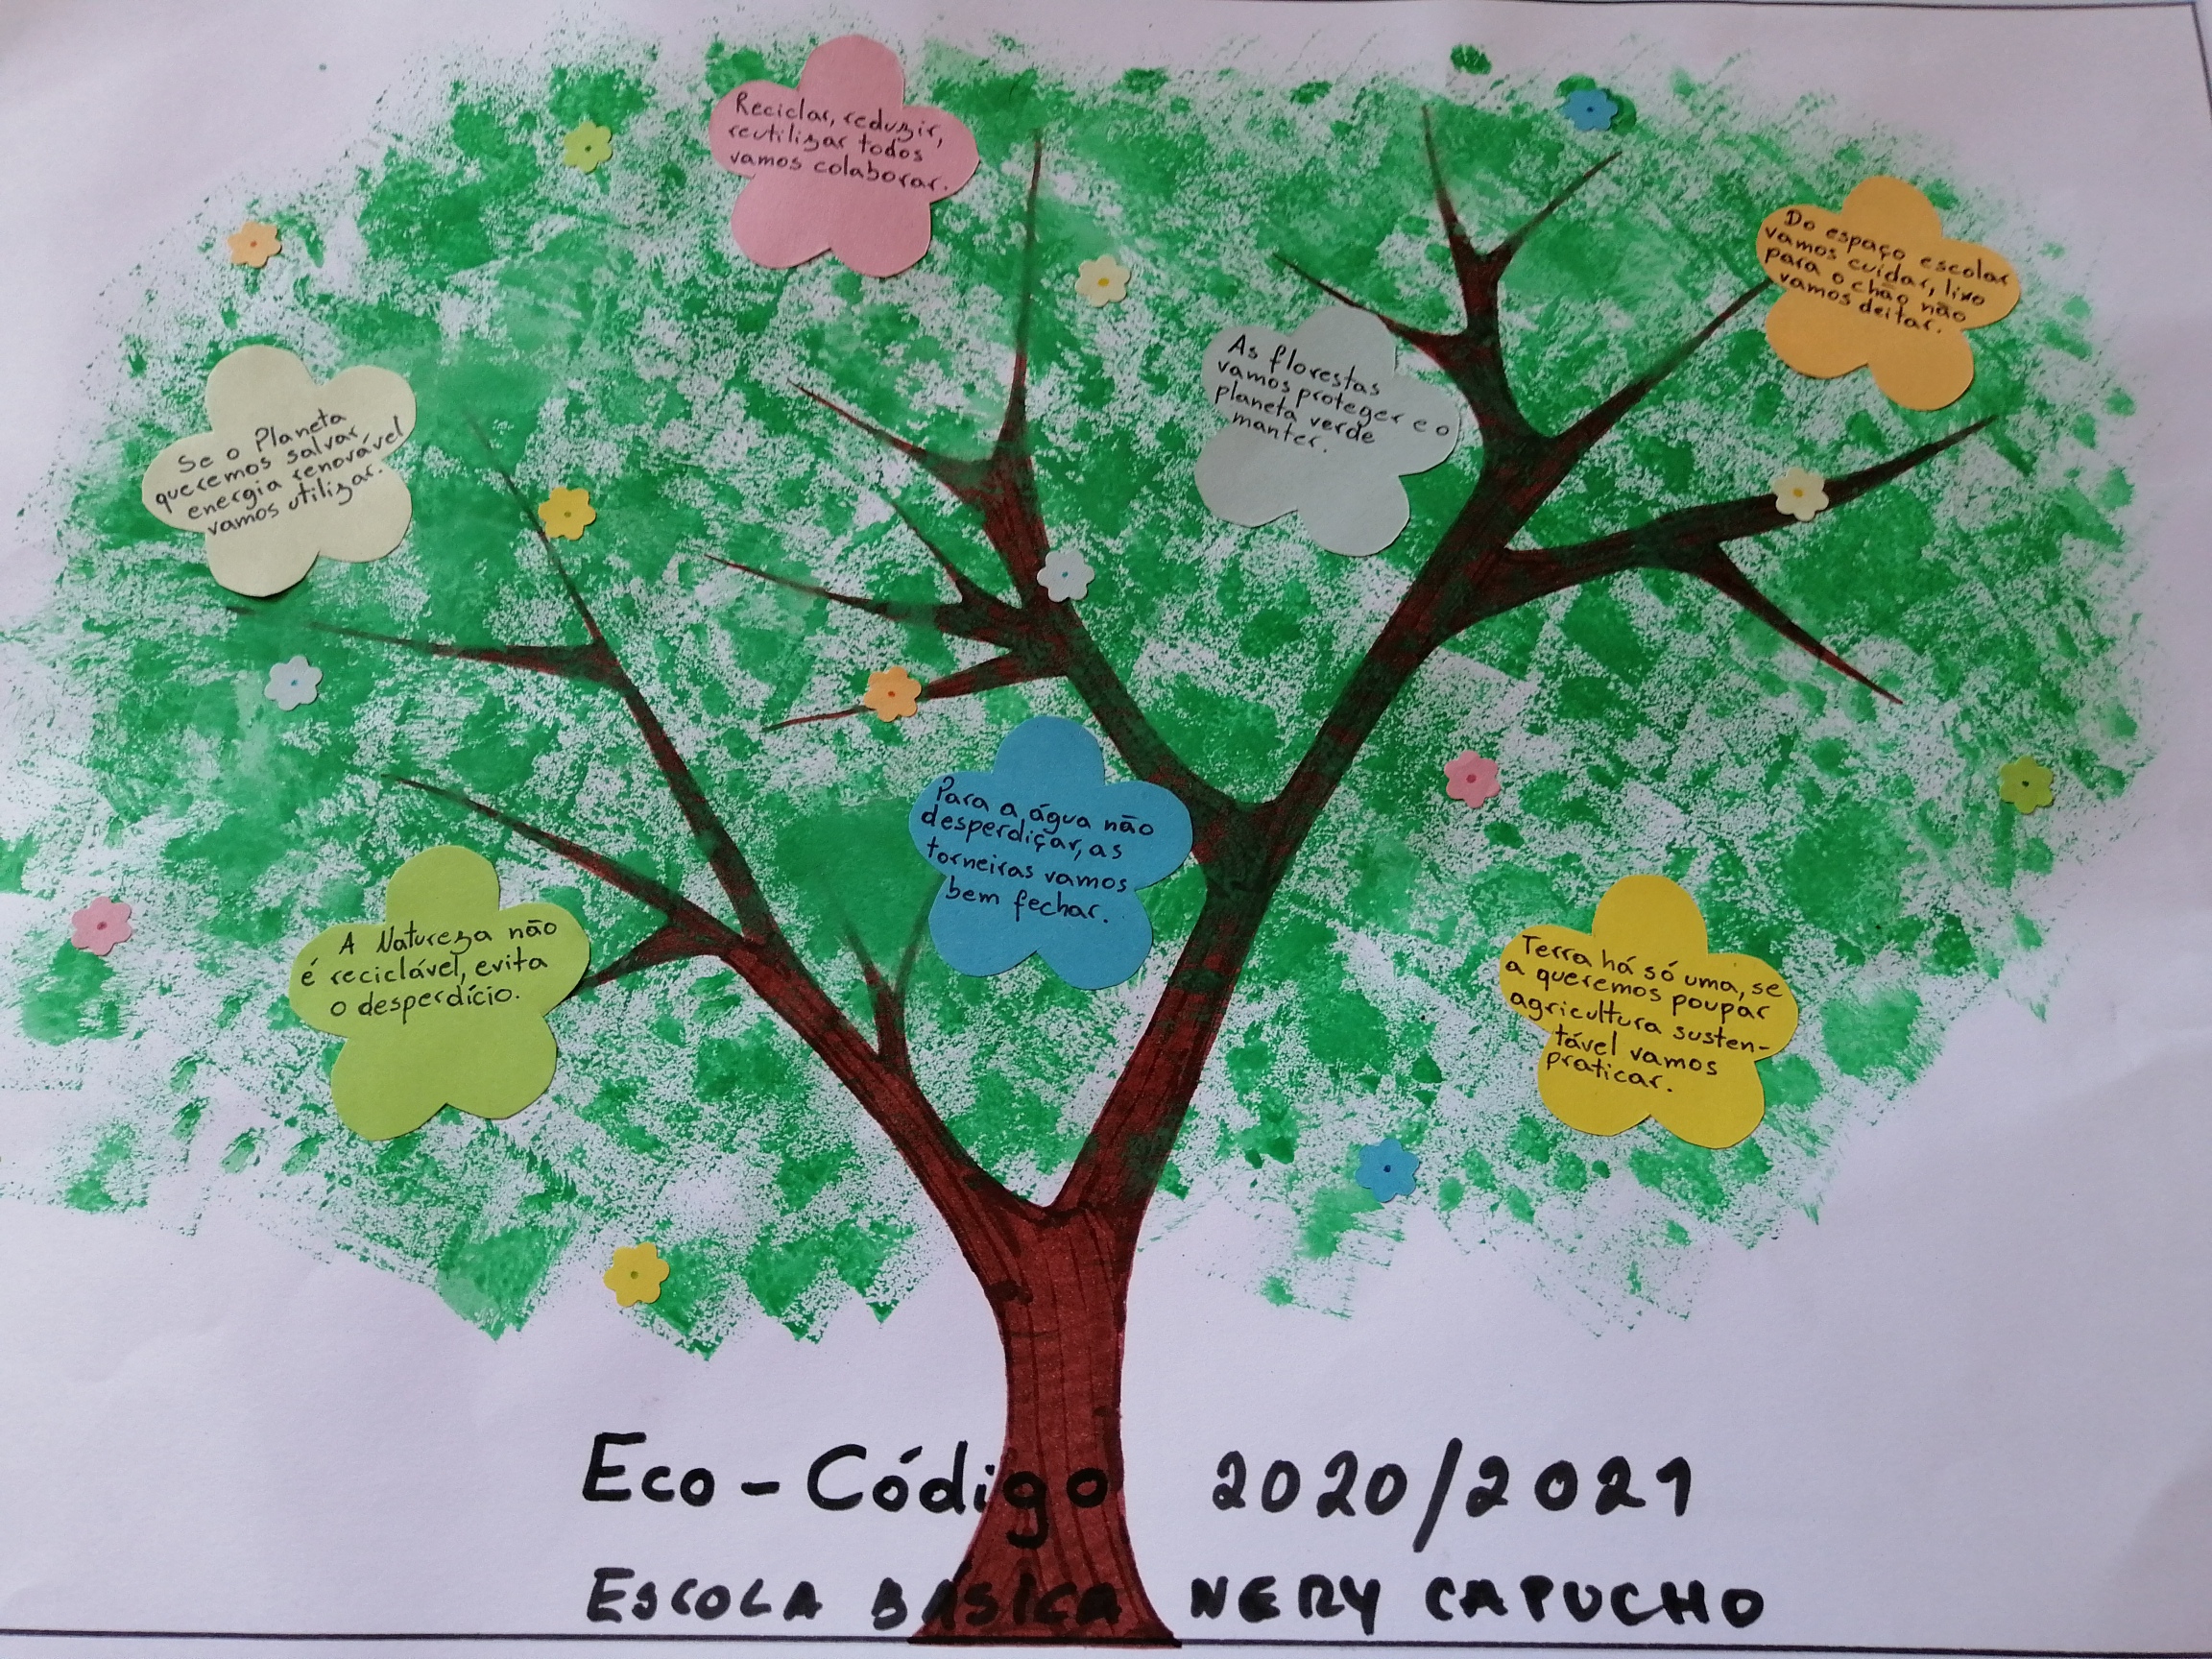 Reciclar, reduzir,
reutilizar todos
vamos colaborar.
Do espaço escolar
vamos cuidar, lixo
para o chão não
vamos deitar.
As florestas
vamos proteger e o
planeta verde
manter.
Se o Planeta
queremos salvar,
energia renovável
vamos utilizar.
Para a água não
desperdiçar, as
torneiras vamos
bem fechar.
A Natureza não
é reciclável, evita
o desperdício.
Terra há só uma, se
a queremos poupar
agricultura susten-
tável vamos
praticar.
Eco-Código 2020/2021
ESCOLA BÁSICA NERY CAPUCHO